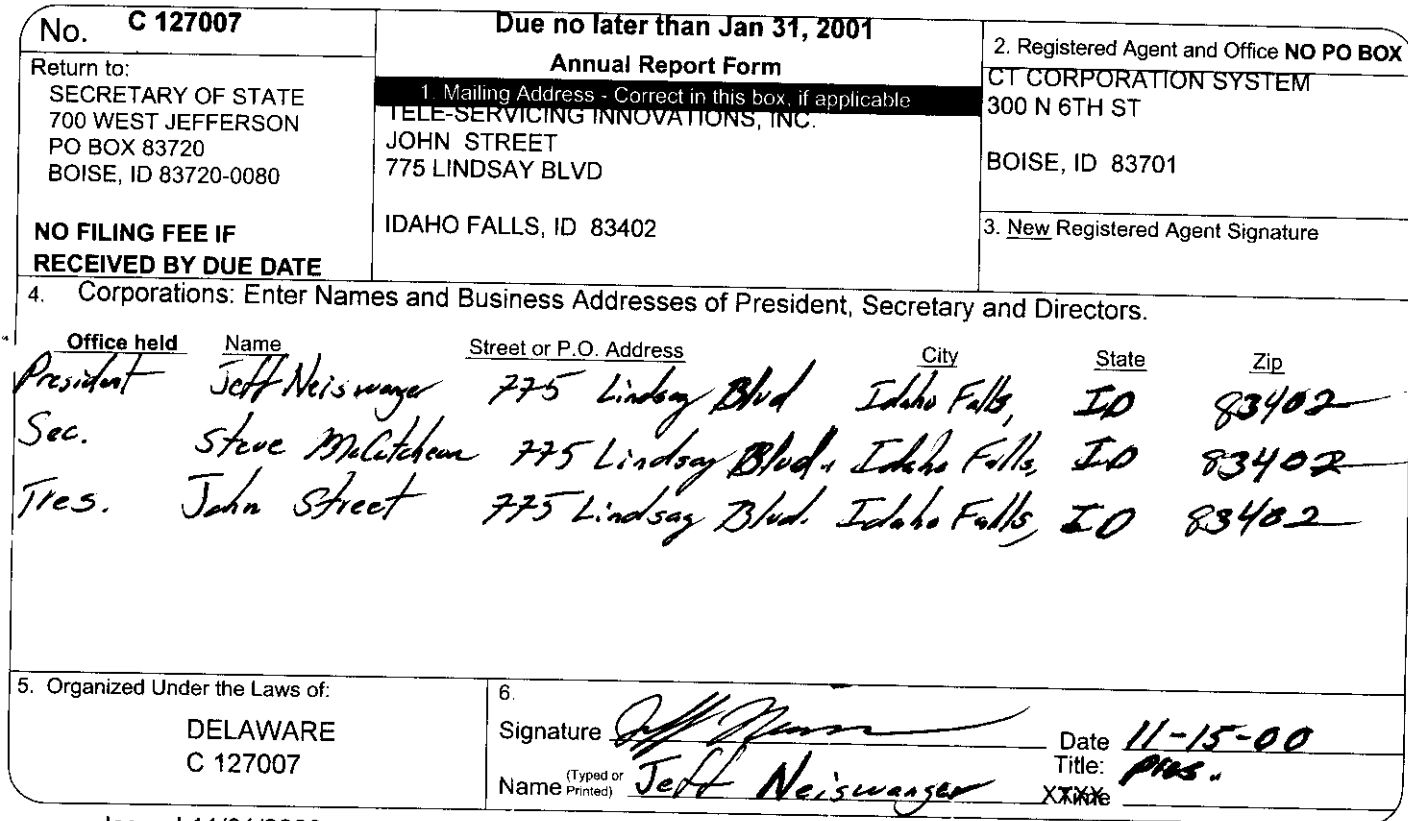 No. C 127007
Return to:
SECRETARY OF STATE
700 WEST JEFFERSON
PO BOX 83720
BOISE, ID 83720-0080
NO FILING FEE IF
RECEIVED BY DUE DATE
Due no later than Jan 31, 2001
Annual Report Form
1. Mailing Address - Correct in this box, if applicable
TELE-SERVICING INNOVATIONS, INC.
JOHN STREET
775 LINDSAY BLVD
IDAHO FALLS, ID 83402
2. Registered Agent and Office NO PO BOX
CT CORPORATION SYSTEM
300 N 6TH ST
BOISE, ID 83701
3. New Registered Agent Signature
4. Corporations: Enter Names and Business Addresses of President, Secretary and Directors.
Office held Name Street or P.O. Address City State Zip
President Jeff Neiswanger 775 Lindsay Blvd Idaho Falls, ID 83402
Sec. Steve McCutcheon 775 Lindsay Blvd. Idaho Falls, ID 83402
Tres. John Street 775 Lindsay Blvd. Idaho Falls, ID 83402
5. Organized Under the Laws of:
DELAWARE
C 127007
6.
Signature Date 11-15-00
Title: pres.
Name (Typed or Printed) Jeff Neiswanger